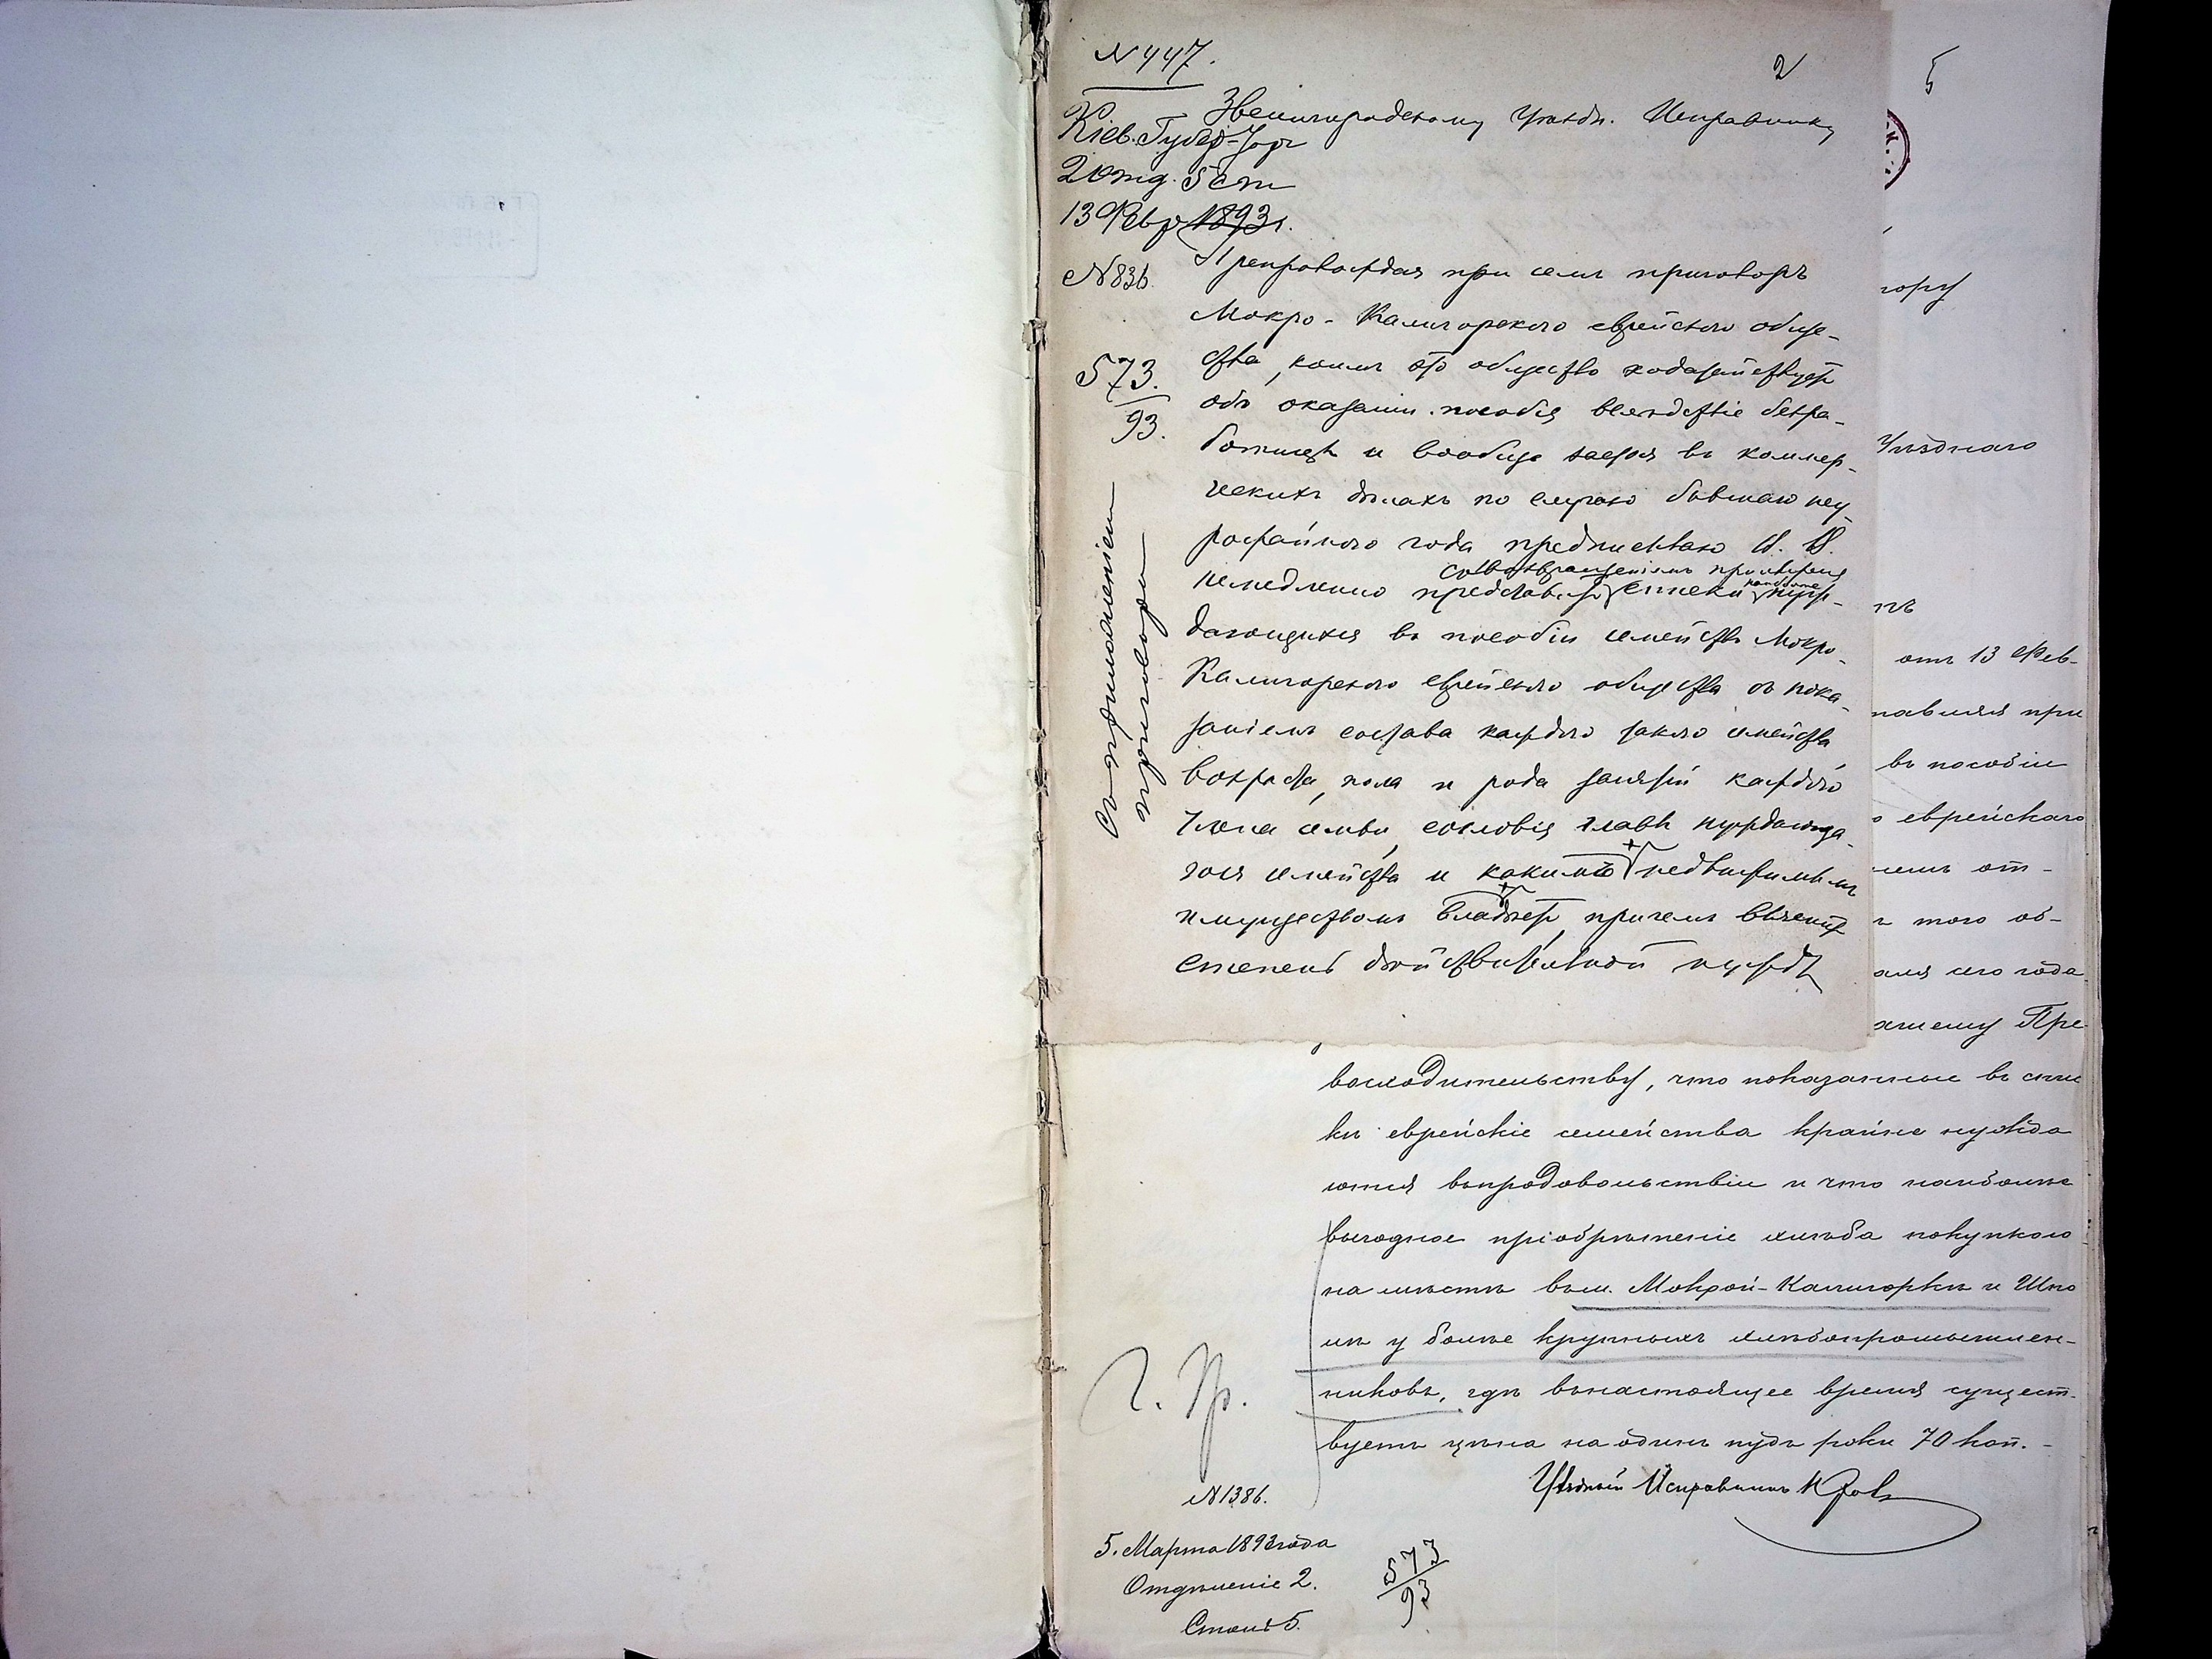 N 447.
2
5
Звенигородскому Уѣздн. Исправнику
Кіев. Губер-Тор
2 отд. 5 ст
13 Февр 1893 г.
N 836.
573.
93.
Съ приложеніем
приговора
Препровождая при семъ приговоръ
Мокро-Калигорского еврейского обще-
ства, коимъ это общество ходатайствует
объ оказаніи пособія вслѣдствіе безра-
ботицы и вообще застоя въ коммер-
ческихъ дѣлахъ по случаю бывшаго неу-
рожайного года предписываю В. В.
съ возвращеніемъ приговора
немедленно представить списки наиболѣе нуж-
дающихся въ пособіи семействъ Мокро-
Калигорского еврейского общества съ пока-
заніемъ состава каждого такого семейства
возраста, пола и рода занятій каждого
члена семьи, сословія главы нуждающа-
гося семейства и какимъ недвижимымъ
имуществомъ владѣетъ, причемъ
степень дѣйствительной нужды
гору
Уѣзднаго
отъ 13 Фев-
при
въ пособіи
еврейскаго
от-
того об-
сего года
Пре
восходительству, что показанные въ спис
кѣ еврейскіе семейства крайне нужда
ются въ продовольствіи и что наиболѣе
выгодное пріобрѣтеніе хлѣба покупкою
на мѣстѣ въ м. Мокрой-Калигоркѣ и Шпо
лѣ у болѣе крупныхъ хлѣбопромышлен-
никовъ, гдѣ въ настоящее время сущест-
вуетъ цѣна на одинъ пудъ ржи 70 коп.-
Уѣздный Исправникъ
N 1386.
5. Марта 1893 года
Отдѣленіе 2.
Столъ 5.
573
93